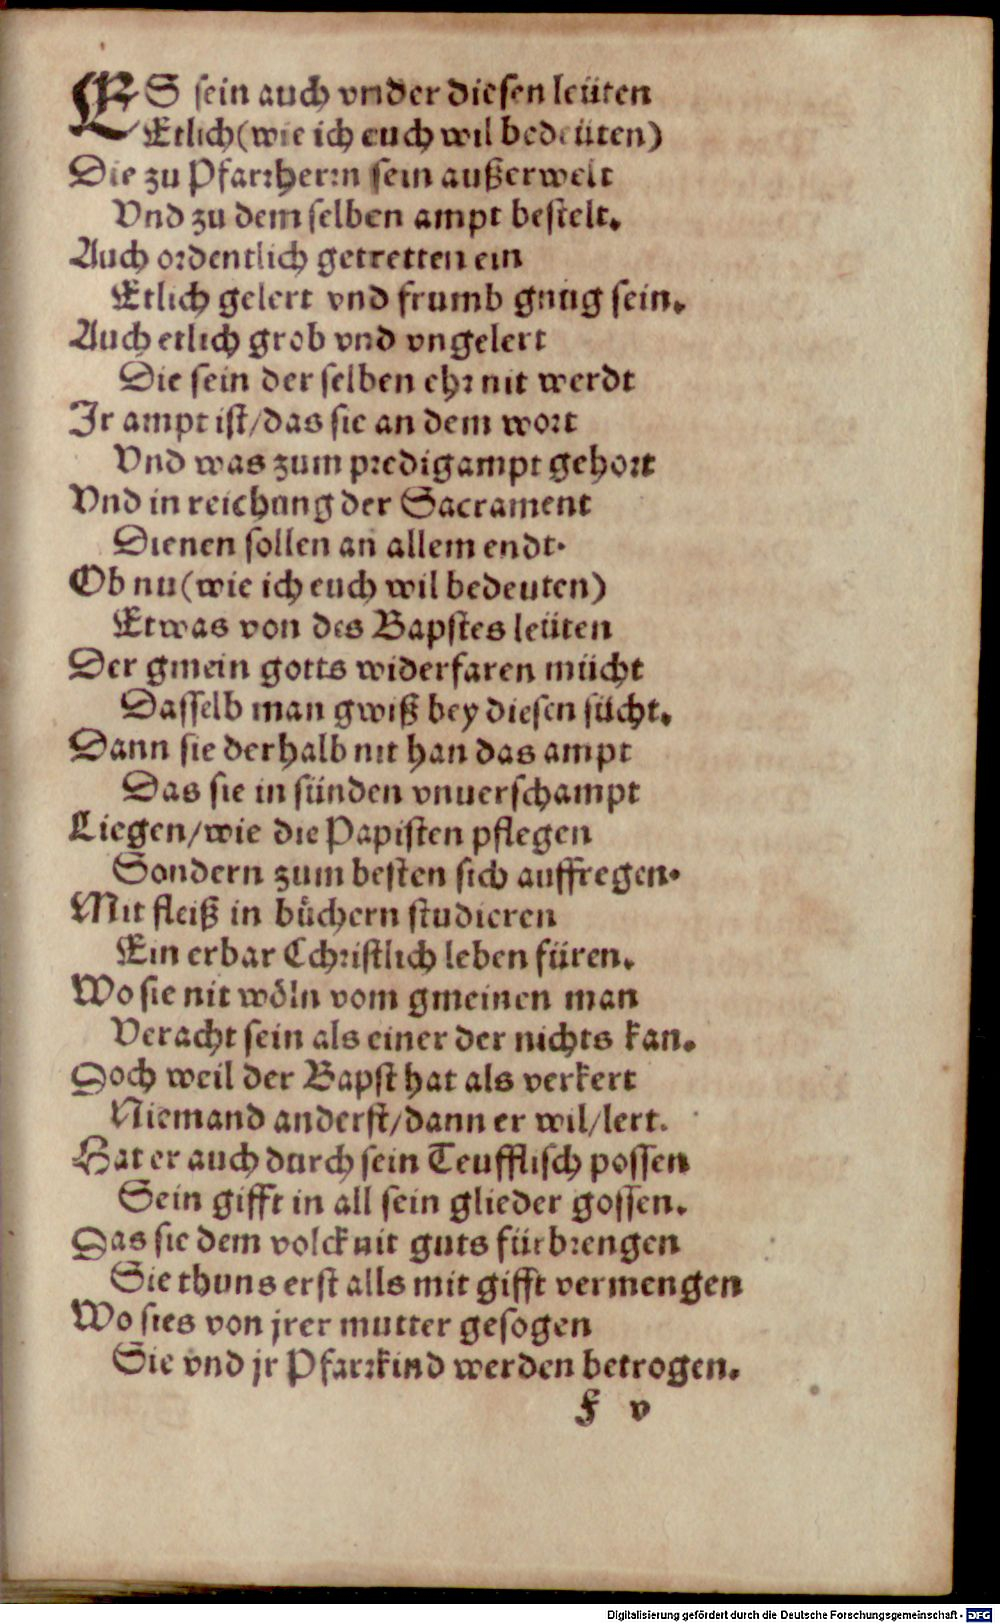 ES sein auch vnder diesen leüten
Etlich (wie ich euch wil bedeüten)
Die zu Pfarrherrn sein außerwelt
Vnd zu dem selben ampt bestelt.
Auch ordentlich getretten ein
Etlich gelert vnd frumb gnug sein.
Auch etlich grob vnd vngelert
Die sein der selben ehr nit werdt
Ir ampt ist/das sie an dem wort
Vnd was zum predigampt gehort
Vnd in reichung der Sacrament
Dienen sollen an allem endt.
Ob nu (wie ich euch wil bedeuten)
Etwas von des Bapstes leüten
Der gmein gotts widerfaren mücht
Dasselb man gwiß bey diesen sücht.
Dann sie derhalb nit han das ampt
Das sie in sünden vnuerschampt
Liegen/wie die Papisten pflegen
Sondern zum besten sich auffregen.
Mit fleiß in bůchern studieren
Ein erbar Cchristlich leben füren.
Wo sie nit wöln vom gmeinen man
Veracht sein als einer der nichts kan.
Doch weil der Bapst hat als verkert
Niemand anderst/dann er wil/lert.
Hat er auch durch sein Teufflisch possen
Sein gifft in all sein glieder gossen.
Das sie dem volck nit guts fürbrengen
Sie thuns erst alls mit gifft vermengen
Wo sies von jrer mutter gesogen
Sie vnd jr Pfarrkind werden betrogen.
F v
Digitalisierung gefördert durch die Deutsche Forschungsgemeinschaft - DFG